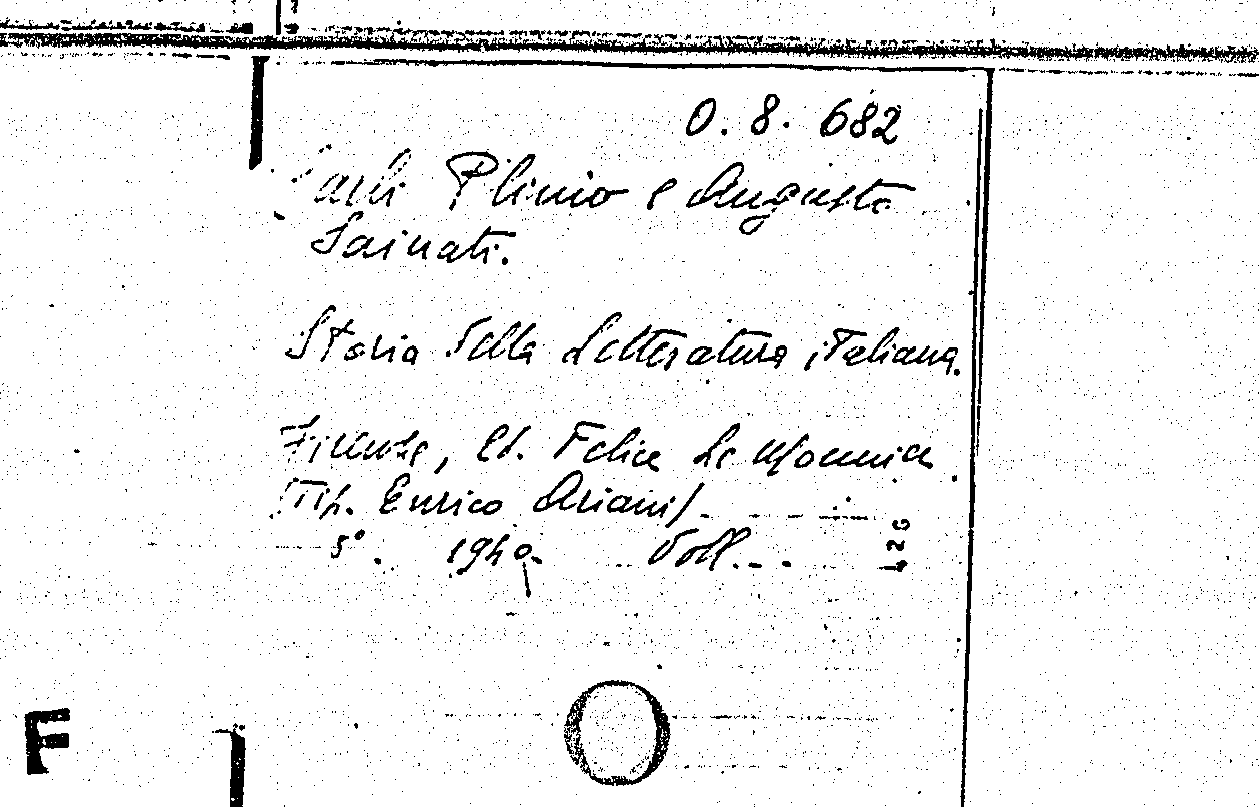 O. 8. 682
Carli Plinio e Augusto
Sainati.
Storia della Letteratura italiana.
Firenze, Ed. Felice Le Monnier
(Tip. Enrico Ariani).
1940
Voll.
F